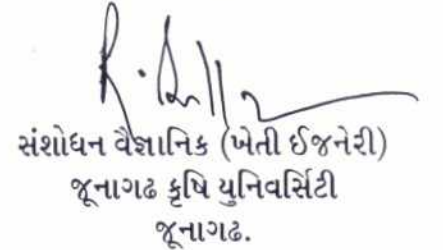 સંશોધન વૈજ્ઞાનિક (ખેતી ઈજનેરી)
જૂનાગઢ કૃષિ યુનિવર્સિટી
જૂનાગઢ.